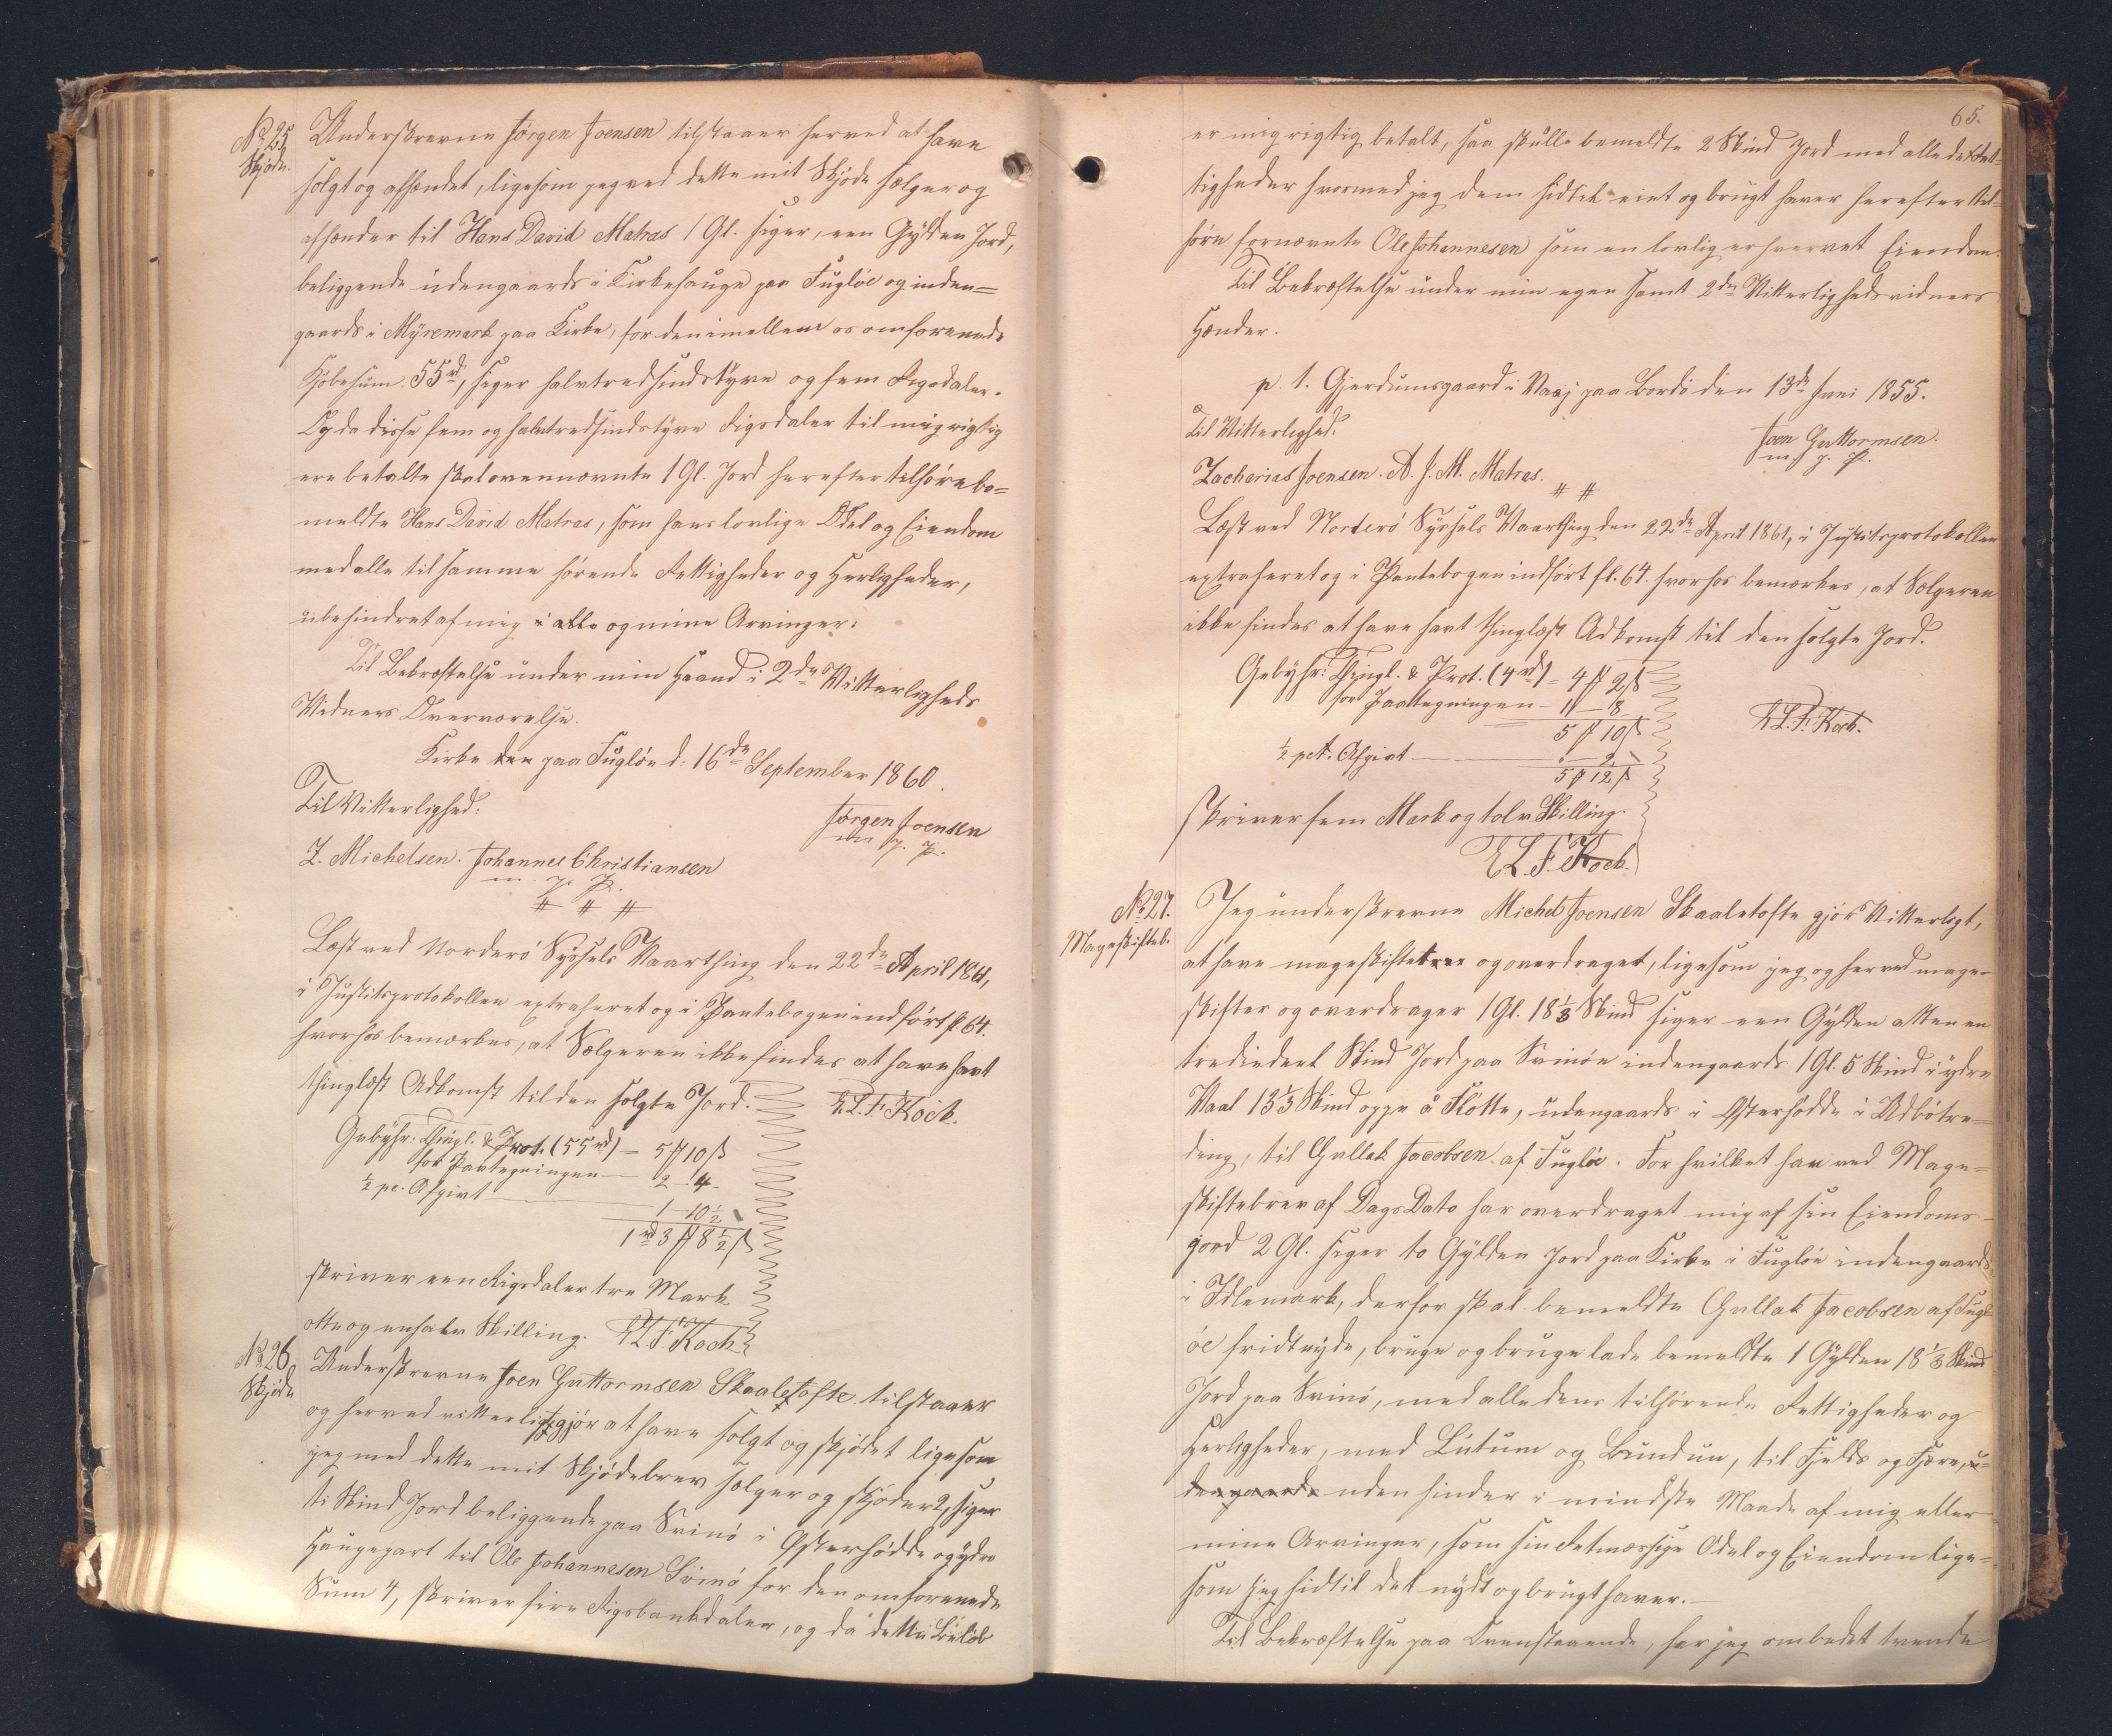 No 25
Skjøde.
Underskrevne Jørgen Joensen tilstaaer herved at have
solgt og afhændet, ligesom jeg ved dette mit Skjøde sælger og
afhænder til Hans David Matras 1 Gl. siger, een Gylden Jord,
beliggende udengaards i Kirkehauge paa Fugløe og inden=
gaards i Myremark paa Kirke, for den imellem os omforenede
Kjøbesum 55rd, siger halvtredsindstyve og fem Rigsdaler.
Og da disse fem og halvtredsindstyve Rigsdaler til mig rigtig
ere betalte skal ovennævnte 1 Gl. Jord herefter tilhøre be=
meldte Hans David Matras, som hans lovlige Odel og Eiendom
med alle til samme hørende Rettigheder og Herligheder,
ubehindret af mig i alle og mine Arvinger.
Til Bekræftelse under min Haand i 2de Vitterligheds
Vidners Overværelse.
Kirke den paa Fugløe d. 16de September 1860.
Til Vitterlighed:
Jørgen Joensen
m. p. P.
Z. Michelsen. Johannes Christiansen
m. p. P.
# # #
Læst ved Norderø Syssels Vaarthing den 22de April 1861,
i Justitsprotokollen extraheret og i Pantebogen indført fl. 64.
hvorhos bemærkes, at Sælgeren ikke findes at have havt
thinglæst Adkomst til den solgte Jord.
E.L.F. Koch.
Gebyhr: Thingl. & Prot. (55rd) = 5 ꝳ 10 ß
for Paategningen — 2 - 4 -
½ pc. Afgivt — 1 — 10½
1rd 3 ꝳ 8½ ß
skriver een Rigsdaler tre Mark
otte og enhalv Skilling. E L F Koch
No 26
Skjøde
Underskrevne Joen Guttormsen Skaaletofte tilstaaer
og herved vitterligtgjør at have solgt og skjødet ligesom
jeg med dette mit Skjødebrev sælger og skjøder 2, siger
to Skind Jord beliggende paa Svinø i Østerhødde og ydre
Haugepart til Ole Johannesen Svinø for den omforenede
Sum 4, skriver fire Rigsbankdaler, og da dette Beløb
65.
er mig rigtig betalt, saa skulle bemeldte 2 Skind Jord med alle de Ret=
tigheder hvormed jeg dem hidtil eiet og brugt haver herefter til=
høre fornævnte Ole Johannesen som en lovlig erhvervet Eiendom.
Til Bekræftelse under min egen samt 2de Vitterlighedsvidners
Hænder.
p. t. Gjerdumsgaard i Vaaj paa Bordø den 13de Juni 1855.
Til Vitterlighed:
Joen Guttormsen.
m. p. P.
Zacharias Joensen. A. J. M. Matras.
# #
Læst ved Norderø Syssels Vaarthing den 22de April 1861, i Justitsprotokollen
extraheret og i Pantebogen indført fl. 64. hvorhos bemærkes, at Sælgeren
ikke findes at have havt thinglæst Adkomst til den solgte Jord.
Gebyhr: Thingl. & Prot. (4rd) = 4 ꝳ 2 ß
for Paategningen — 1 — 8
5 ꝳ 10 ß
½ pct. Afgivt — - — 2.
5 ꝳ 12 ß
E.L.F. Koch.
skriver fem Mark og tolv Skilling.
E L. F. Koch.
No 27.
Mageskifteb.
Jeg underskrevne Michel Joensen Skaaletofte gjør Vitterligt,
at have mageskiftet og overdraget, ligesom jeg og herved mage-
skifter og overdrager 1 Gl. 18⅓ Skind siger een Gylden atten en
trediedeel Skind Jord paa Svinøe indengaards 1 Gl. 5 Skind i ydre
Vaal 13⅓ Skind oppe å Fløtte, udengaards i Østerhødde i Udbøtre=
ding, til Gullak Jacobsen af Fugløe. For hvilket han ved Mage=
skiftebrev af Dags Dato har overdraget mig af sin Eiendoms-
jord 2 Gl. siger to Gylden Jord paa Kirke i Fugløe indengaards
i Idlemark, derfor skal bemeldte Gullak Jacobsen af Fugl
øe fridt nyde, bruge og bruge lade bemeldte 1 Gylden 18⅓ Skind
Jord paa Svinø, med alle dens tilhørende Rettigheder og
Herligheder, med Lutum og Lundun, til Fjelds og Fjære, u=
dengaards uden hinder i mindste Maade af mig eller
mine Arvinger, som sin Retmæssige Odel og Eiendom lige=
som jeg hidtil det nydt og brugt haver.—
Til Bekræftelse paa Ovenstaaende, har jeg ombedet tvende